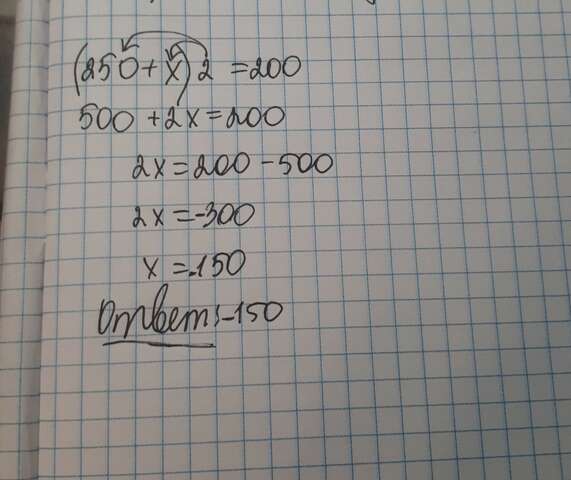 (250+x)2=200
500+2x=200
2x=200-500
2x=-300
x=-150
Ответ:-150